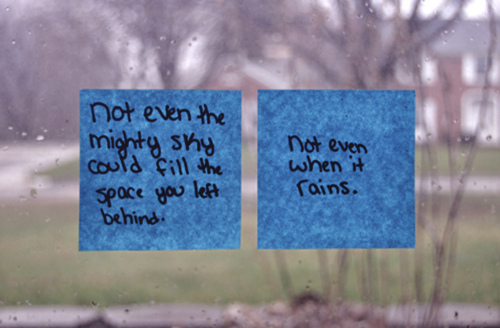 Not even the
mighty sky
could fill the
space you left
behind.
Not even
when it
rains.